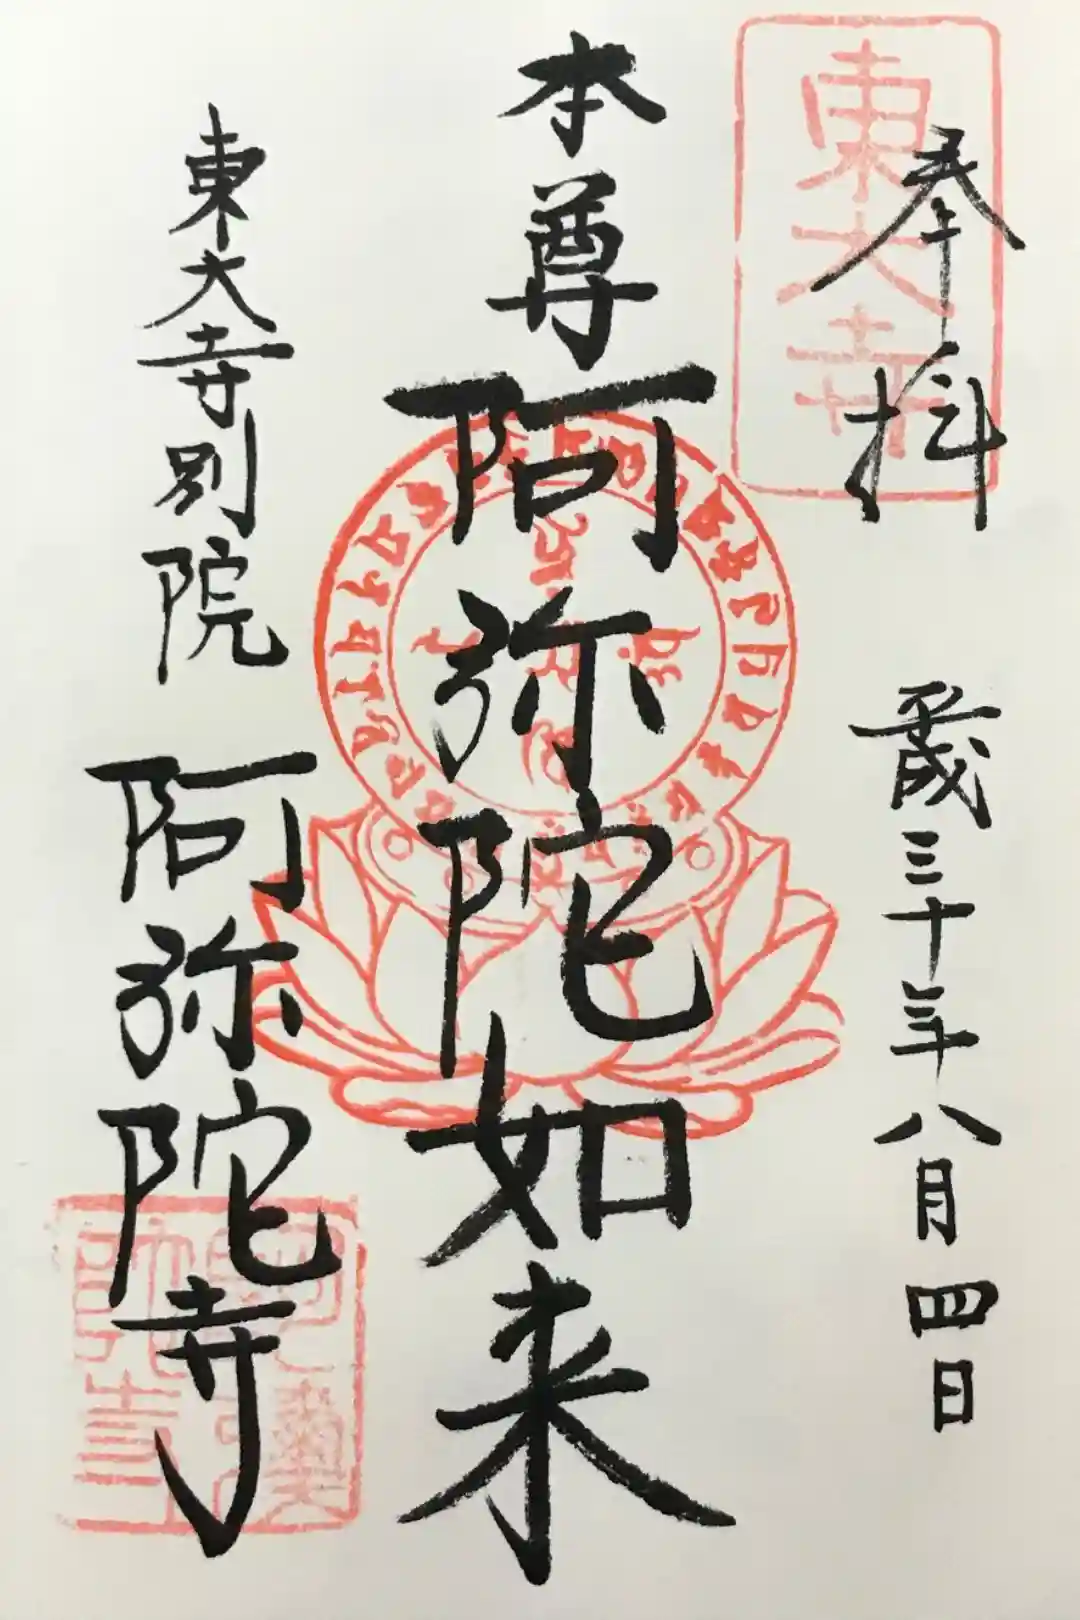 東大寺
奉拝
歳三十年八月四日
本尊
阿弥陀如来
東大寺別院
阿弥陀寺